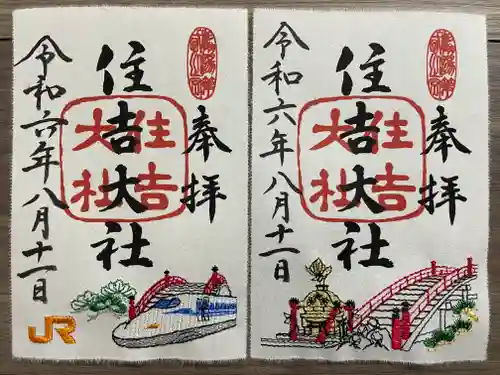 奉拝
住吉大社
住吉大社
令和六年八月十一日
JR
奉拝
住吉大社
住吉大社
令和六年八月十一日